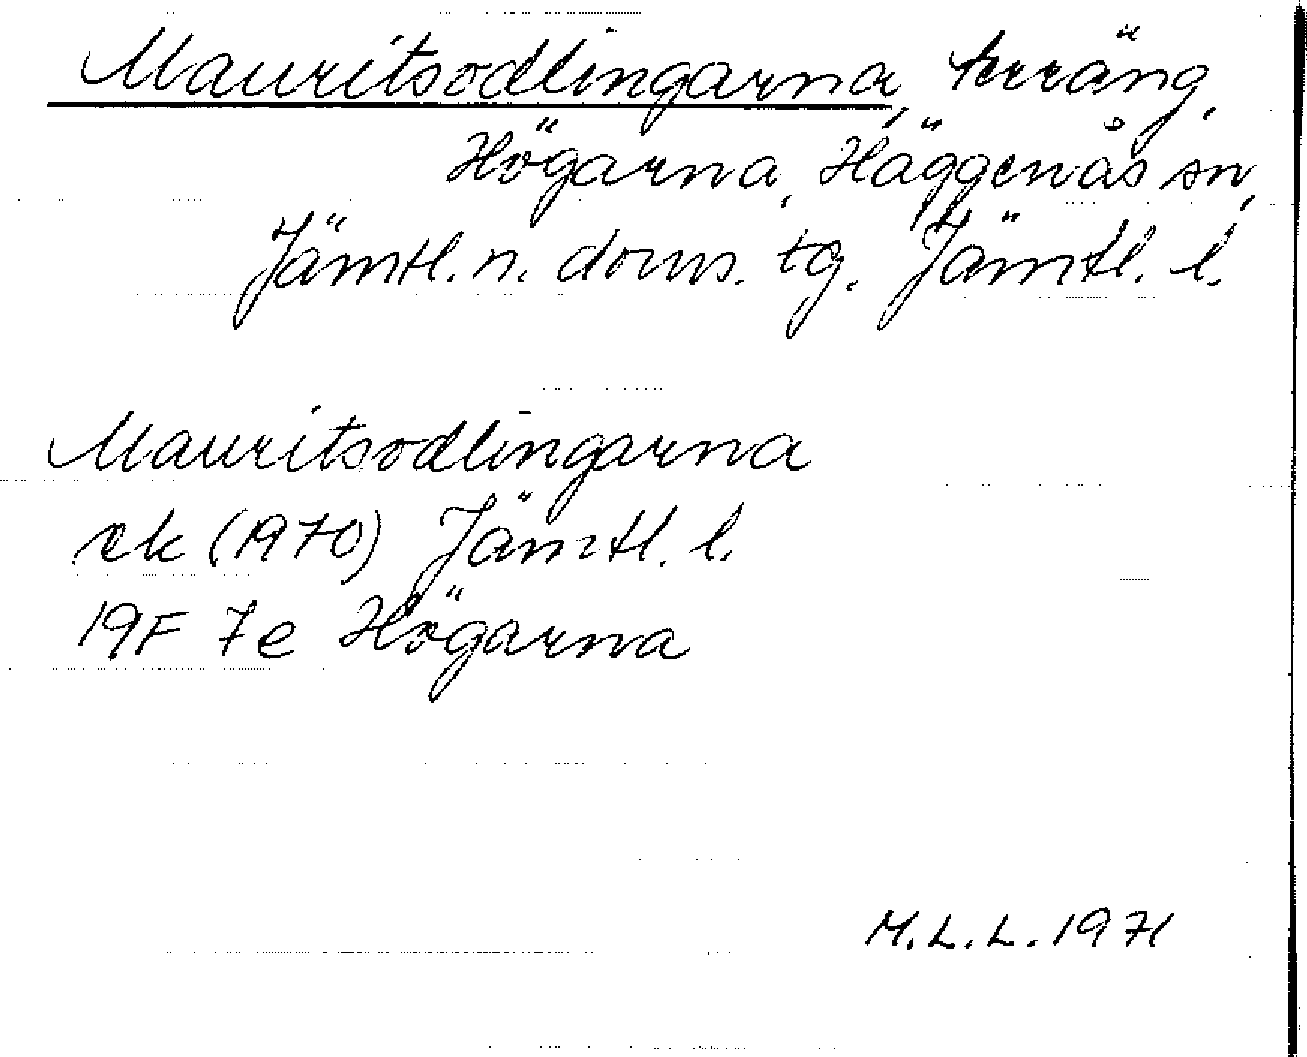 Mauritsodlingarna, terräng,
Högarna, Häggenås sn,
Jämtl. n. doms. tg. Jämtl. l.
Mauritsodlingarna
ek (1970) Jämtl. l.
19F 7e Högarna
M.L.L. 1971